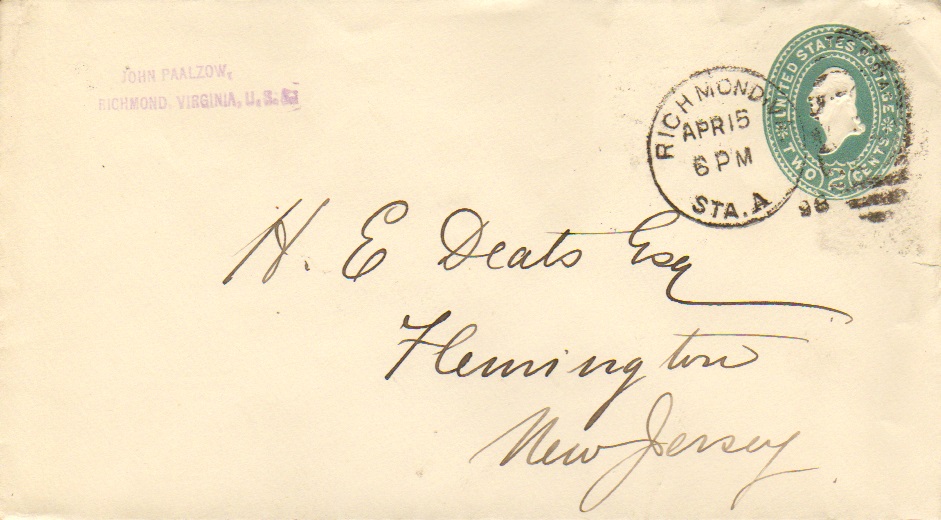 JOHN PAALZOW,
RICHMOND, VIRGINIA, U.S.A.
UNITED STATES POSTAGE
TWO 2 CENTS
RICHMOND
APR 15
6 PM
STA. A
98
H. E Deats Esq
Flemington
New Jersey